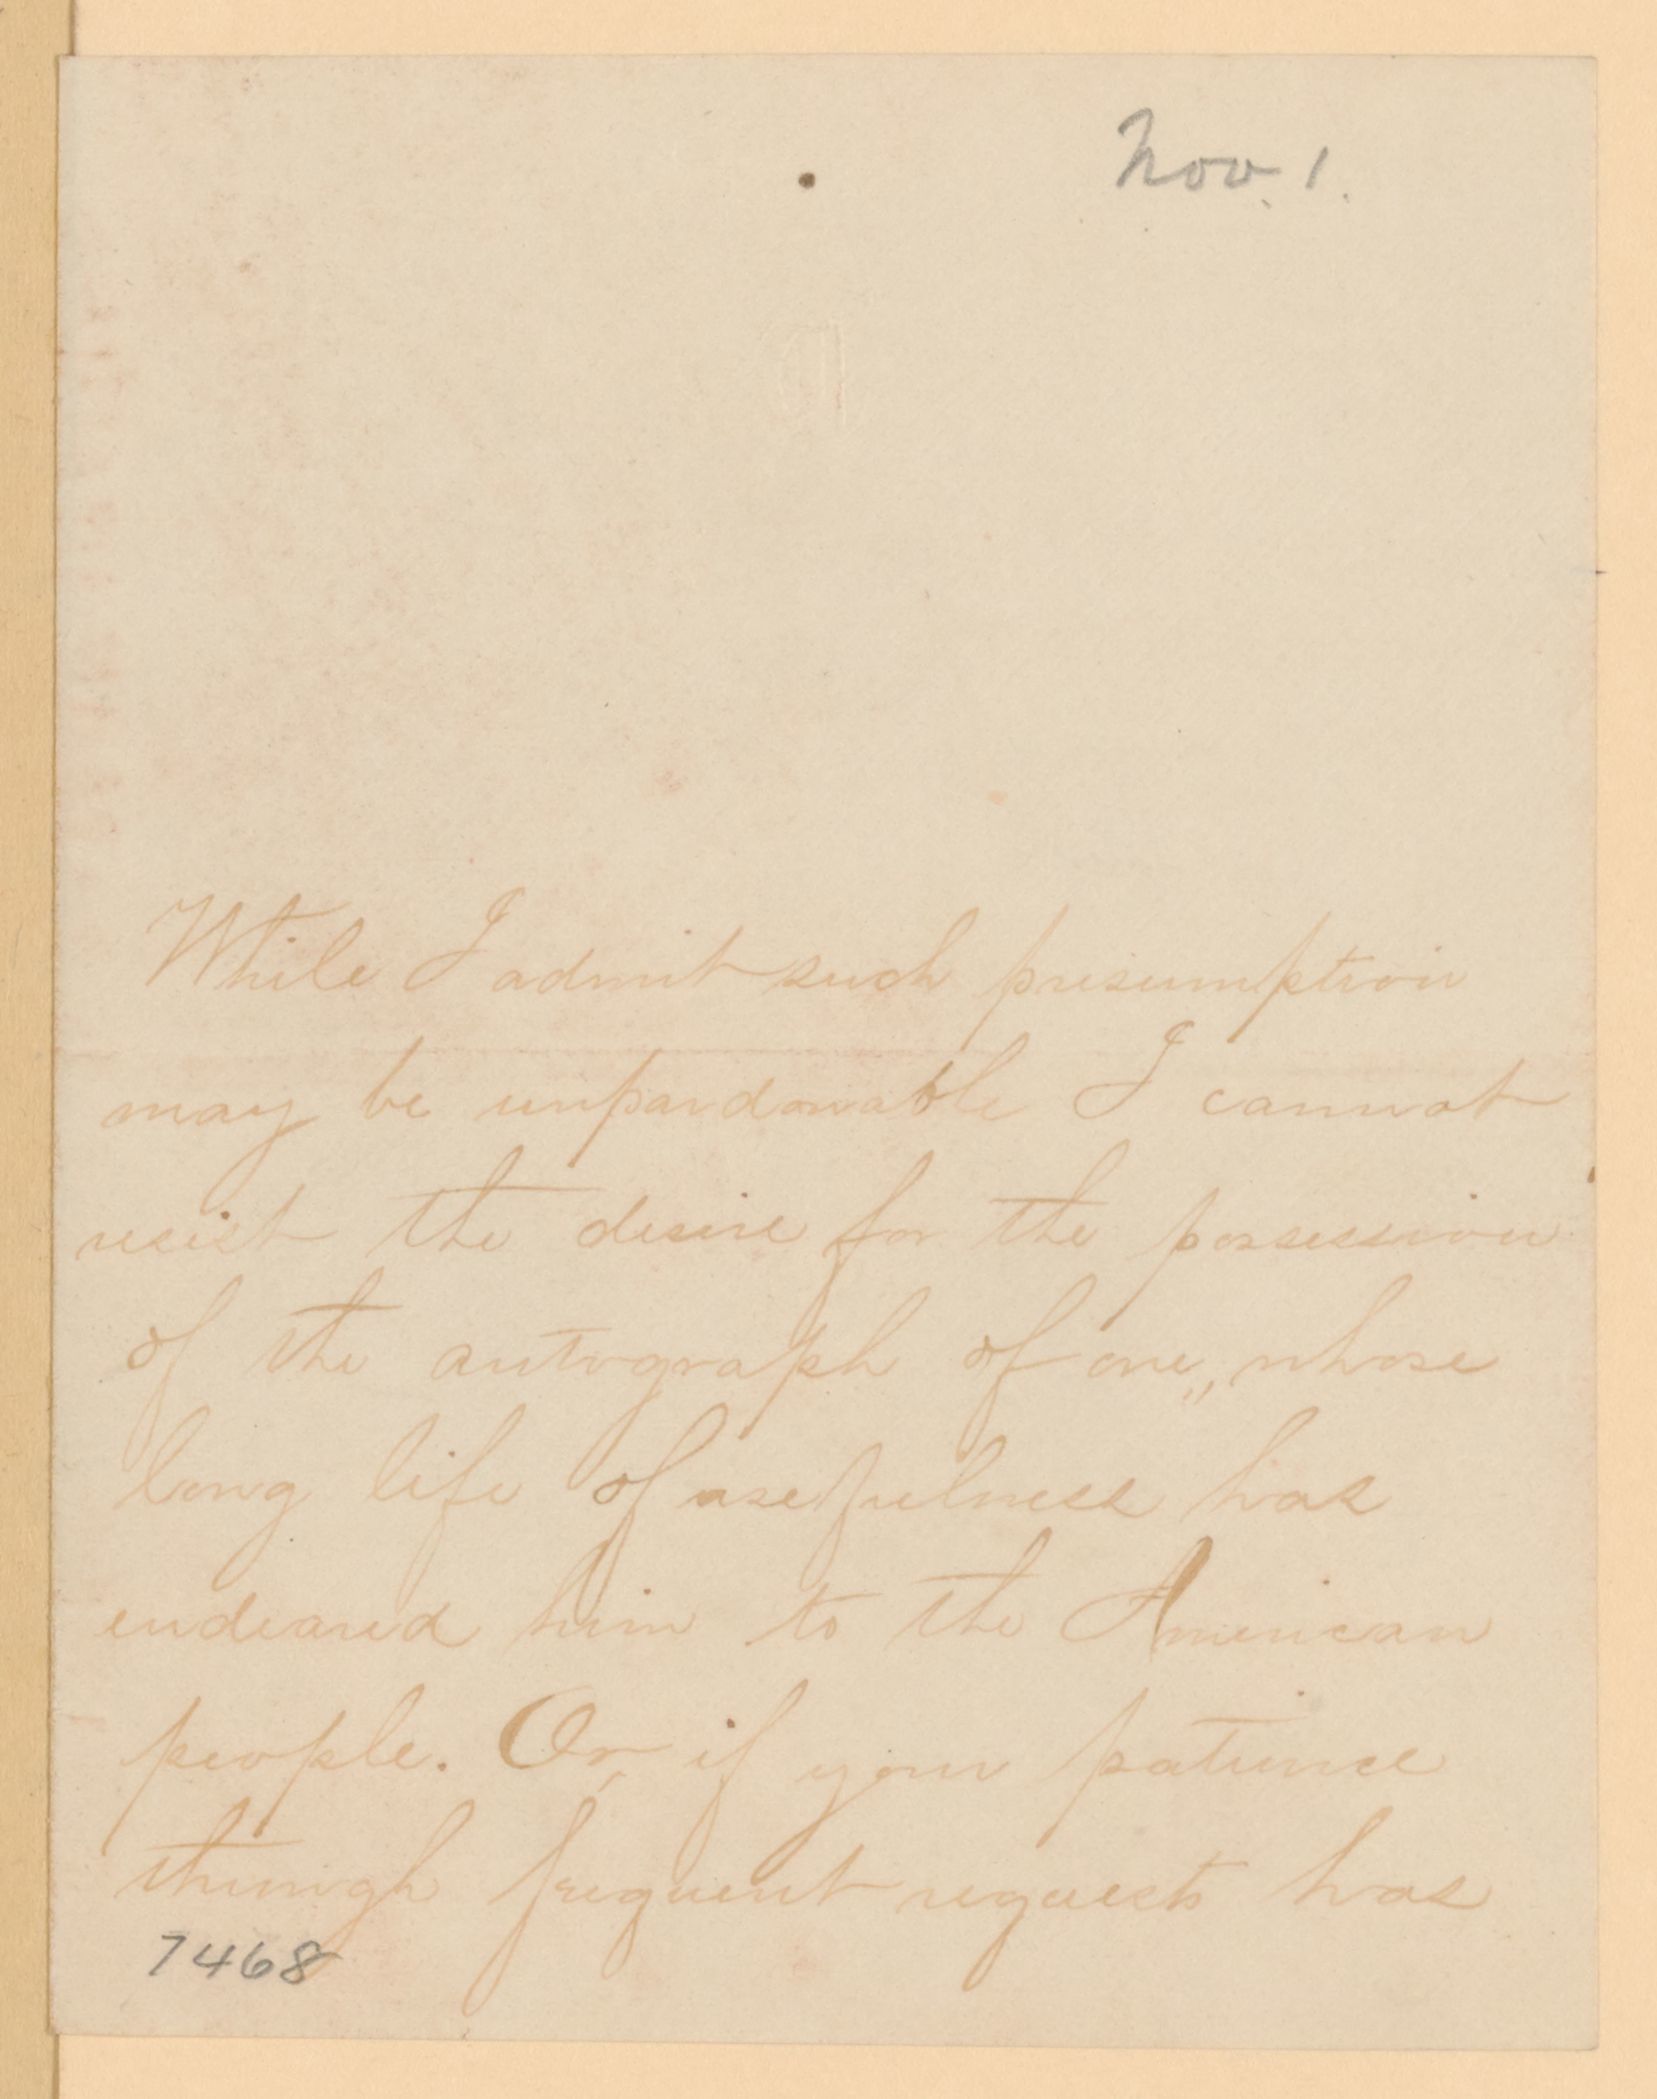 Nov. 1.
While I admit such presumption
may be unpardonable I cannot
resist the desire for the possession
of the autograph of one,, whose
long life of usefulness has
endeared him to the American
people. Or, if your patience
through frequent requests has
7468